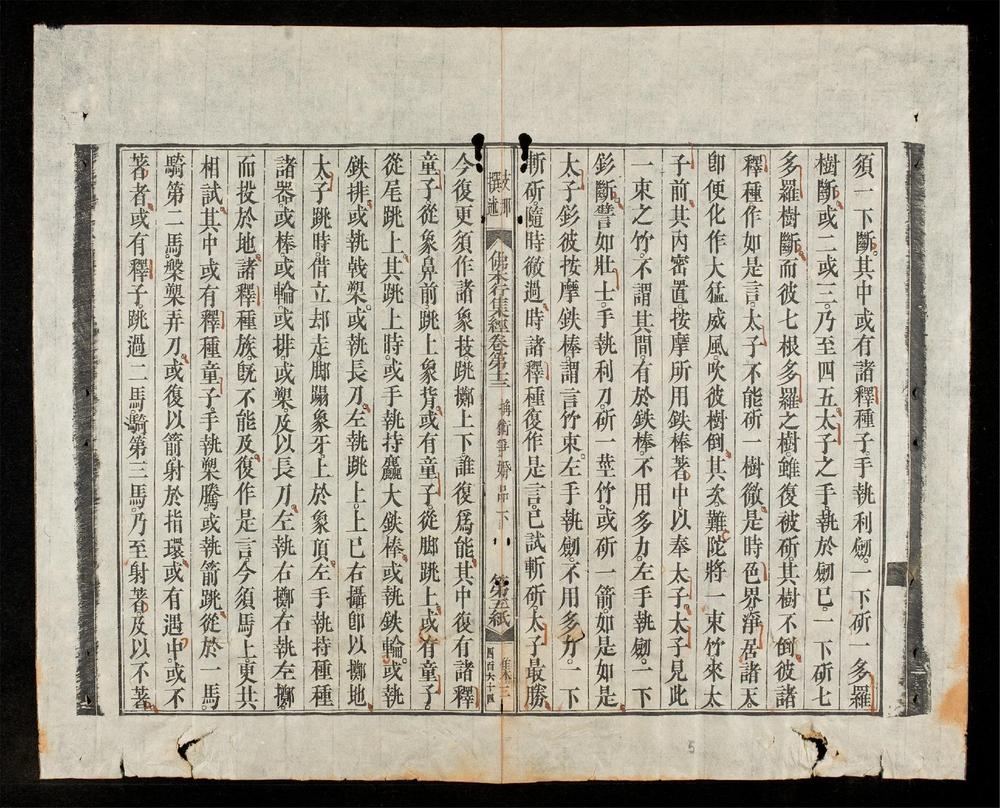 須一下斷。其中或有諸釋種子。手執利劒。一下斫一多羅
樹斷。或二或三。乃至四五。太子之手。執於劒已。一下斫七
多羅樹斷。而彼七根多羅之樹。雖復被斫。其樹不倒。彼諸
釋種作如是言。太子不能斫一樹徹。是時色界淨居諸天。
卽便化作大猛威風。吹彼樹倒。其次難陀將一束竹來太
子前。其內密置。按摩所用鉄棒著中。以奉太子。太子見此
一束之竹。不謂其間。有於鉄棒。不用多力。左手執劒。一下
釤斷。譬如壯士。手執利刀。斫一莖竹。或斫一箭。如是如是
太子釤彼按摩鉄棒。謂言竹束。左手執劒。不用多力。一下
斬斫。隨時徹過。時諸釋種復作是言。已試斬斫。太子最勝
支那
撰述
佛本行集經卷第十三
捔術爭婚品下
第五紙
集三
四百六十四
今復更須作諸象技。跳擲上下。誰復爲能。其中復有諸釋
童子。從象鼻前跳上象背。或有童子。從脚跳上。或有童子。
從尾跳上。其跳上時。或手執持麤大鉄棒。或執鉄輪。或執
鉄排。或執戟槊。或執長刀。左執跳上。上已右攝。卽以擲地
太子跳時。借立却走。脚蹋象牙。上於象頂。左手執持種種
諸器。或棒或輪。或排或槊。及以長刀。左執右擲。右執左擲。
而投於地。諸釋種族。旣不能及。復作是言。今須馬上更共
相試。其中或有釋種童子。手執槊騰。或執箭跳。從於一馬。
騎第二馬。槃槊弄刀。或復以箭。射於指環。或有遇中。或不
著者。或有釋子。跳過二馬。騎第三馬。乃至射著。及以不著。
5